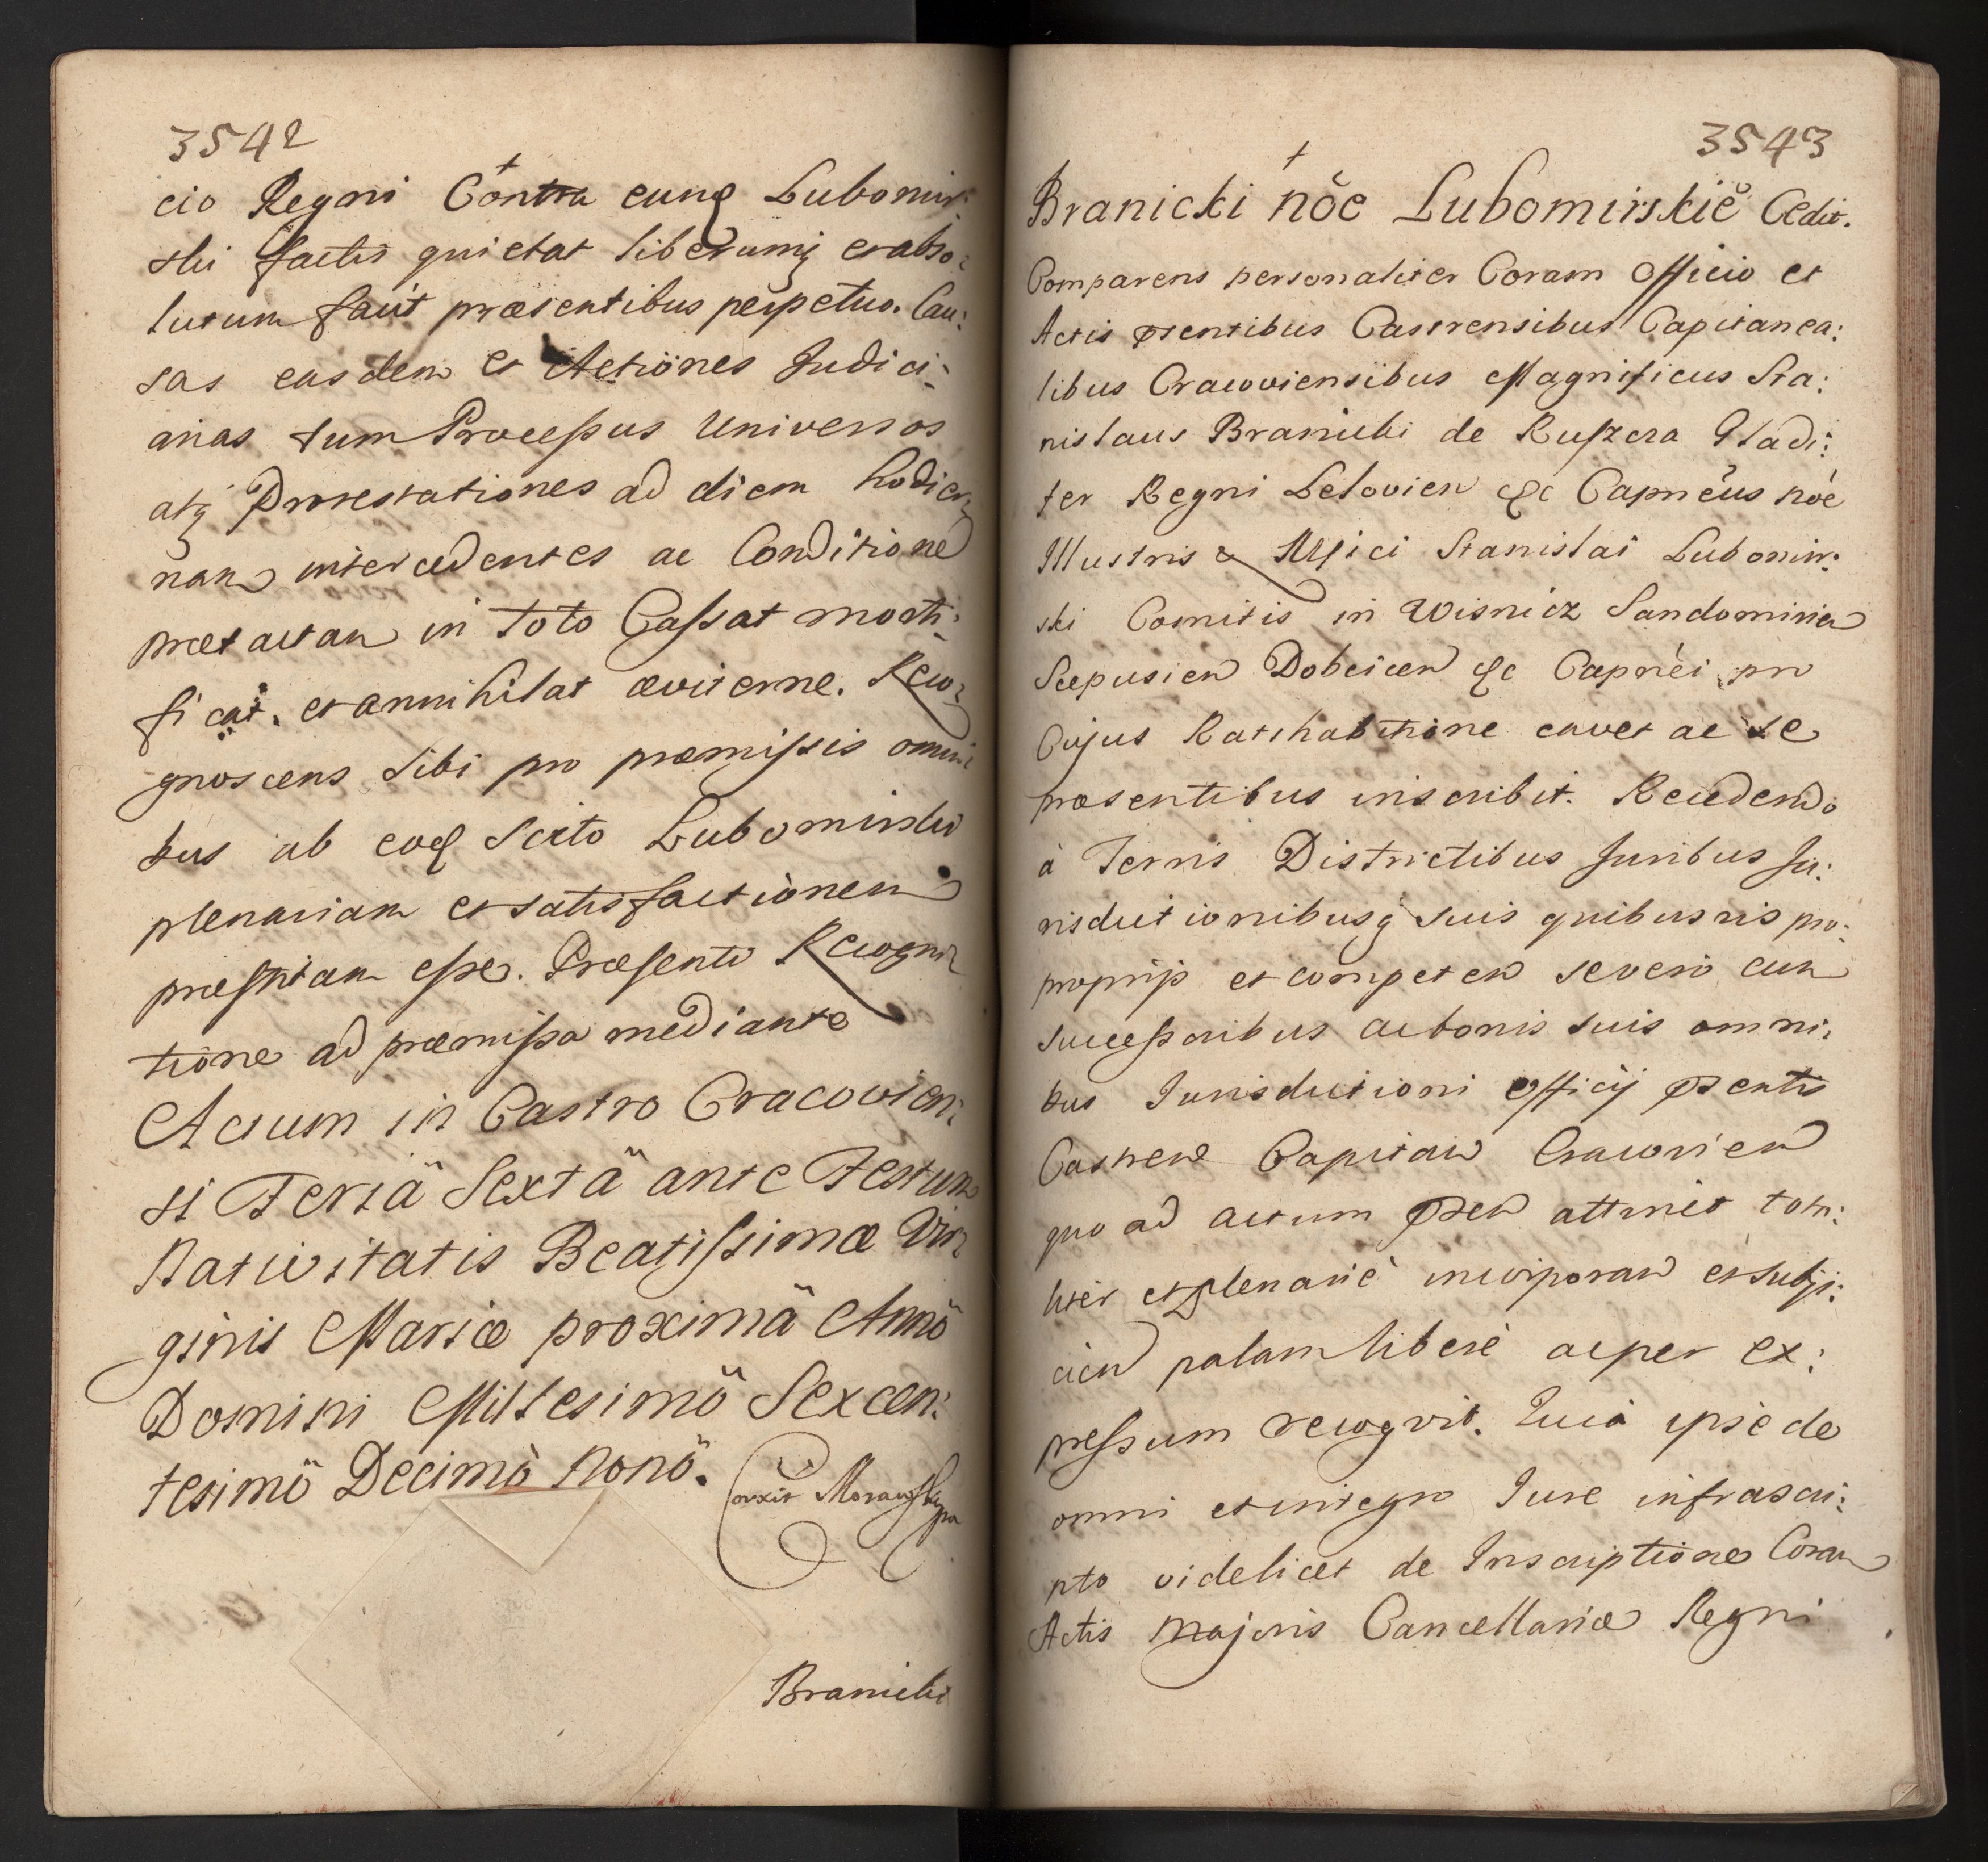 3542
cio Regni Contra eunđ Lubomir:
ski factis quietat liberumq̨ et abso:
lutum facit præsentibus perpetuo. Cau:
sas easdem et Actiones Judici:
arias tum Processus Universos
atq̨ Protestationes ad diem hodier:
nam intercedentes ac Conditione
prætactam in toto Cassat morti:
ficat. et annihilat æviterne. Reco:
gnoscens sibi pro præmissis omni:
bus ab eođ Scito Lubomirski
plenariam et satisfactionem
præstitam esse. Præsenti Recogni:
tione ad præmissa mediante
Actum in Castro Cracovien:
si Feriä Sextä ante Festum
Nativitatis Beatissimæ Vir:
ginis Mariæ proximä Annö
Domini Millesimö Sexcen:
tesimö Decimö Nonö.
Branicki
3543
Branicki nõe Lubomirskiẽ Cedit.
Comparens personaliter Coram Officio et
Actis pr̃sentibus Castrensibus Capitanea:
libus Cracoviensibus Magnificus Sta:
nislaus Branicki de Ruszcza Gladi:
ter Regni Lelovien &c Capnẽus nõe
Illustris & Mfici Stanislai Lubomir:
ski Comitis in Wisnicz Sandomirien
Scepusien Dobcicen &c Capnẽi pro
Cujus Ratihabitione cavet ac se
præsentibus inscribit. Recedendo
à Terris Districtibus Juribus Ju:
risdictionibusq̨ suis quibusvis pro:
proprijs et competen seversõ cum
successoribus ac bonis suis omni:
bus Jurisdictioni officij pr̃sentis
Castren Capitan Cracovien
quo ad actum pr̃sen attinet tota:
liter et plenarie incorporan et subji:
cien palam libere ac per ex:
pressum recogvit. Quia ipse de
omni et integro Jure infrascri:
pto videlicet de Inscriptione Coram
Actis Majoris Cancellariæ Regni